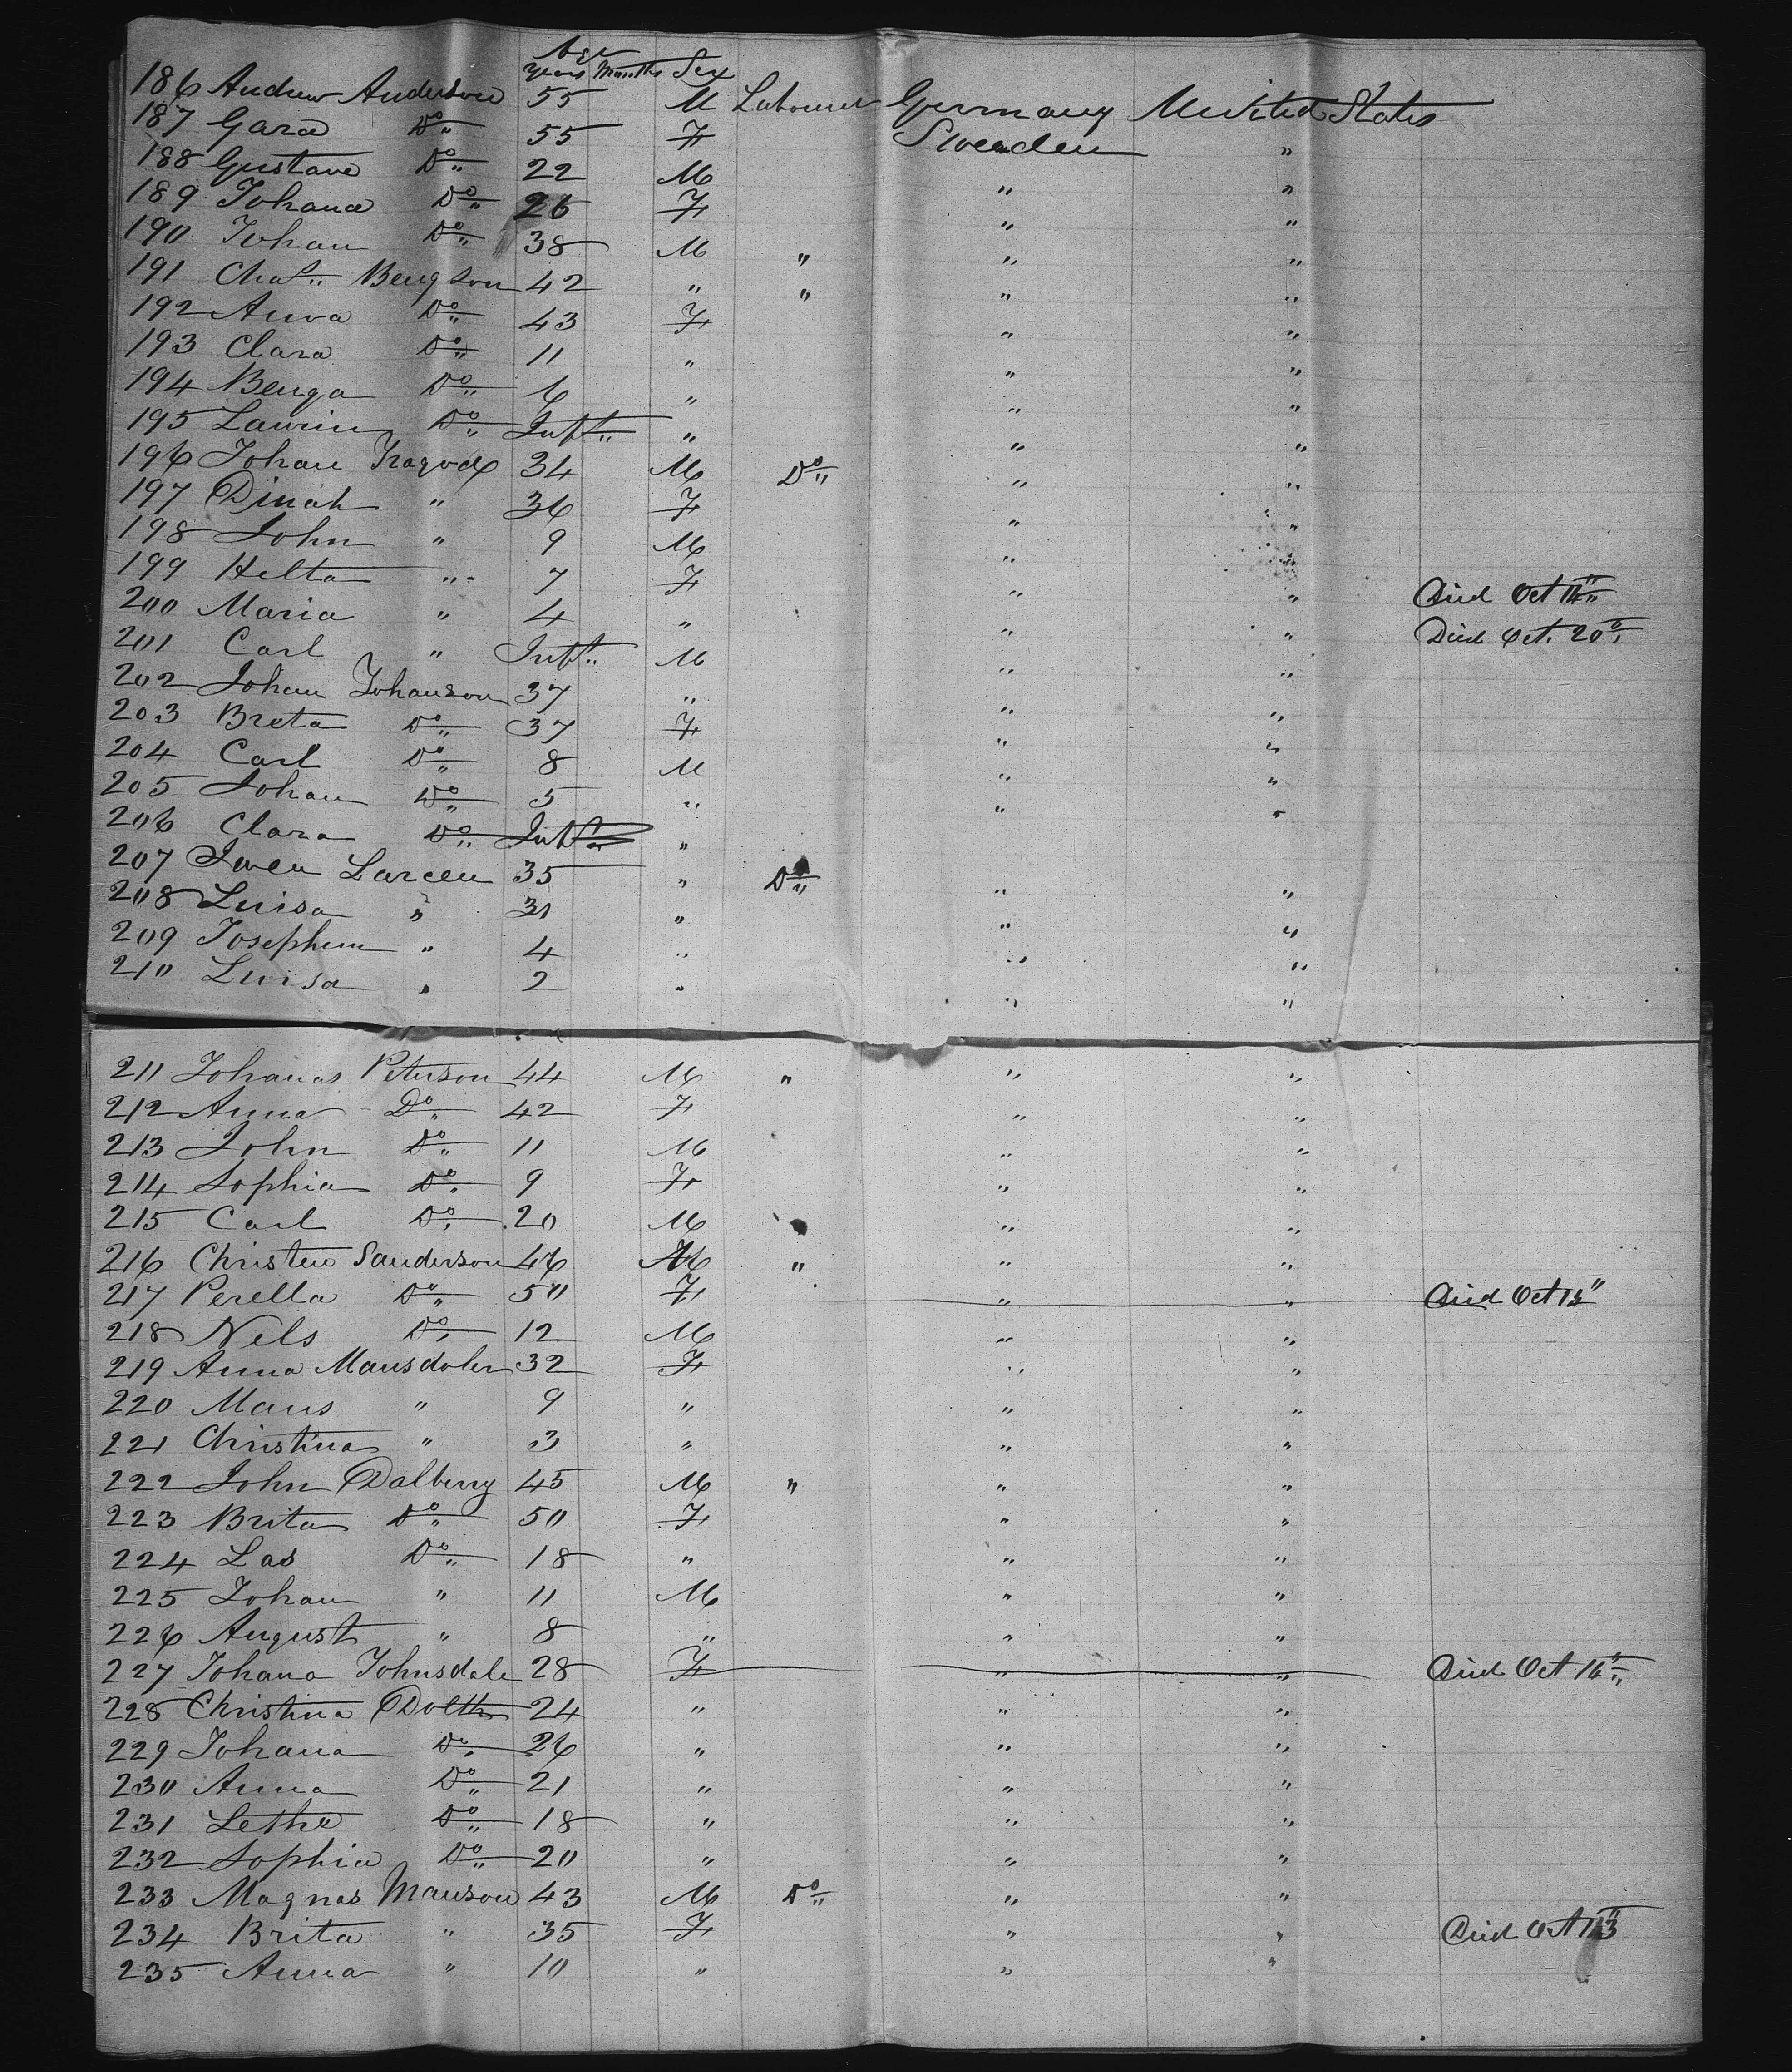 Age
Years Months Sex
186 Andrew Anderson 55 M Labourer Germany United States
187 Gara Do 55 F Sweaden "
188 Gustave Do 22 M " "
189 Johana Do 26 F " "
190 Johan Do 38 M " " "
191 Chas. Bengson 42 " " " "
192 Anna Do 43 F " "
193 Clara Do 11 " " "
194 Benga Do 6 " " "
195 Laurin Do Inft " " "
196 Johan 34 M Do " "
197 Dinah " 36 F " "
198 John " 9 M " "
199 Helta " 7 F " " Died Oct
200 Maria " 4 " " " Died Oct. 20"
201 Carl " Inft M " "
202 Johan Johanson 37 " " "
203 Breta Do 37 F " "
204 Carl Do 8 M " "
205 Johan Do 5 " " "
206 Clara Do Inft "
207 Swen Larcen 35 " Do " "
208 Luisa " 31 " " "
209 Josephem " 4 " " "
210 Luisa " 2 " " "
211 Johanas Peterson 44 M " " "
212 Anna Do 42 F " "
213 John Do 11 M " "
214 Sophia Do 9 F " "
215 Carl Do 20 M " " "
216 Christen Sanderson 46 M " " "
217 Perella Do 50 F " " Died Oct
218 Nels Do 12 M " "
219 Anna Mansdoler 32 F " "
220 Mans " 9 " " "
221 Christina " 3 " " "
222 John Dalberg 45 M " " "
223 Brita Do 50 F " "
224 Las Do 18 " " "
225 Johan " 11 M " "
226 August " 8 " " "
227 Johana Johnsdale 28 F " " Died Oct 16"
228 Christina Dolth 24 " " "
229 Johana Do 26 " " "
230 Anna Do 21 " " "
231 Letha Do 18 " " "
232 Sophia Do 20 " " "
233 Magnas Manson 43 M Do " "
234 Brita " 35 F " " Died Oct
235 Anna " 10 " " "